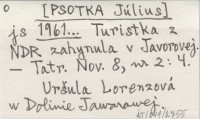 o [PSOTKA Július]
js 1961... Turistka z
NDR zahynula v Javorovej.
— Tatr. Nov. 8, nr 2: 4.
Uršula Lorenzová
w Dolinie Jaworowej.